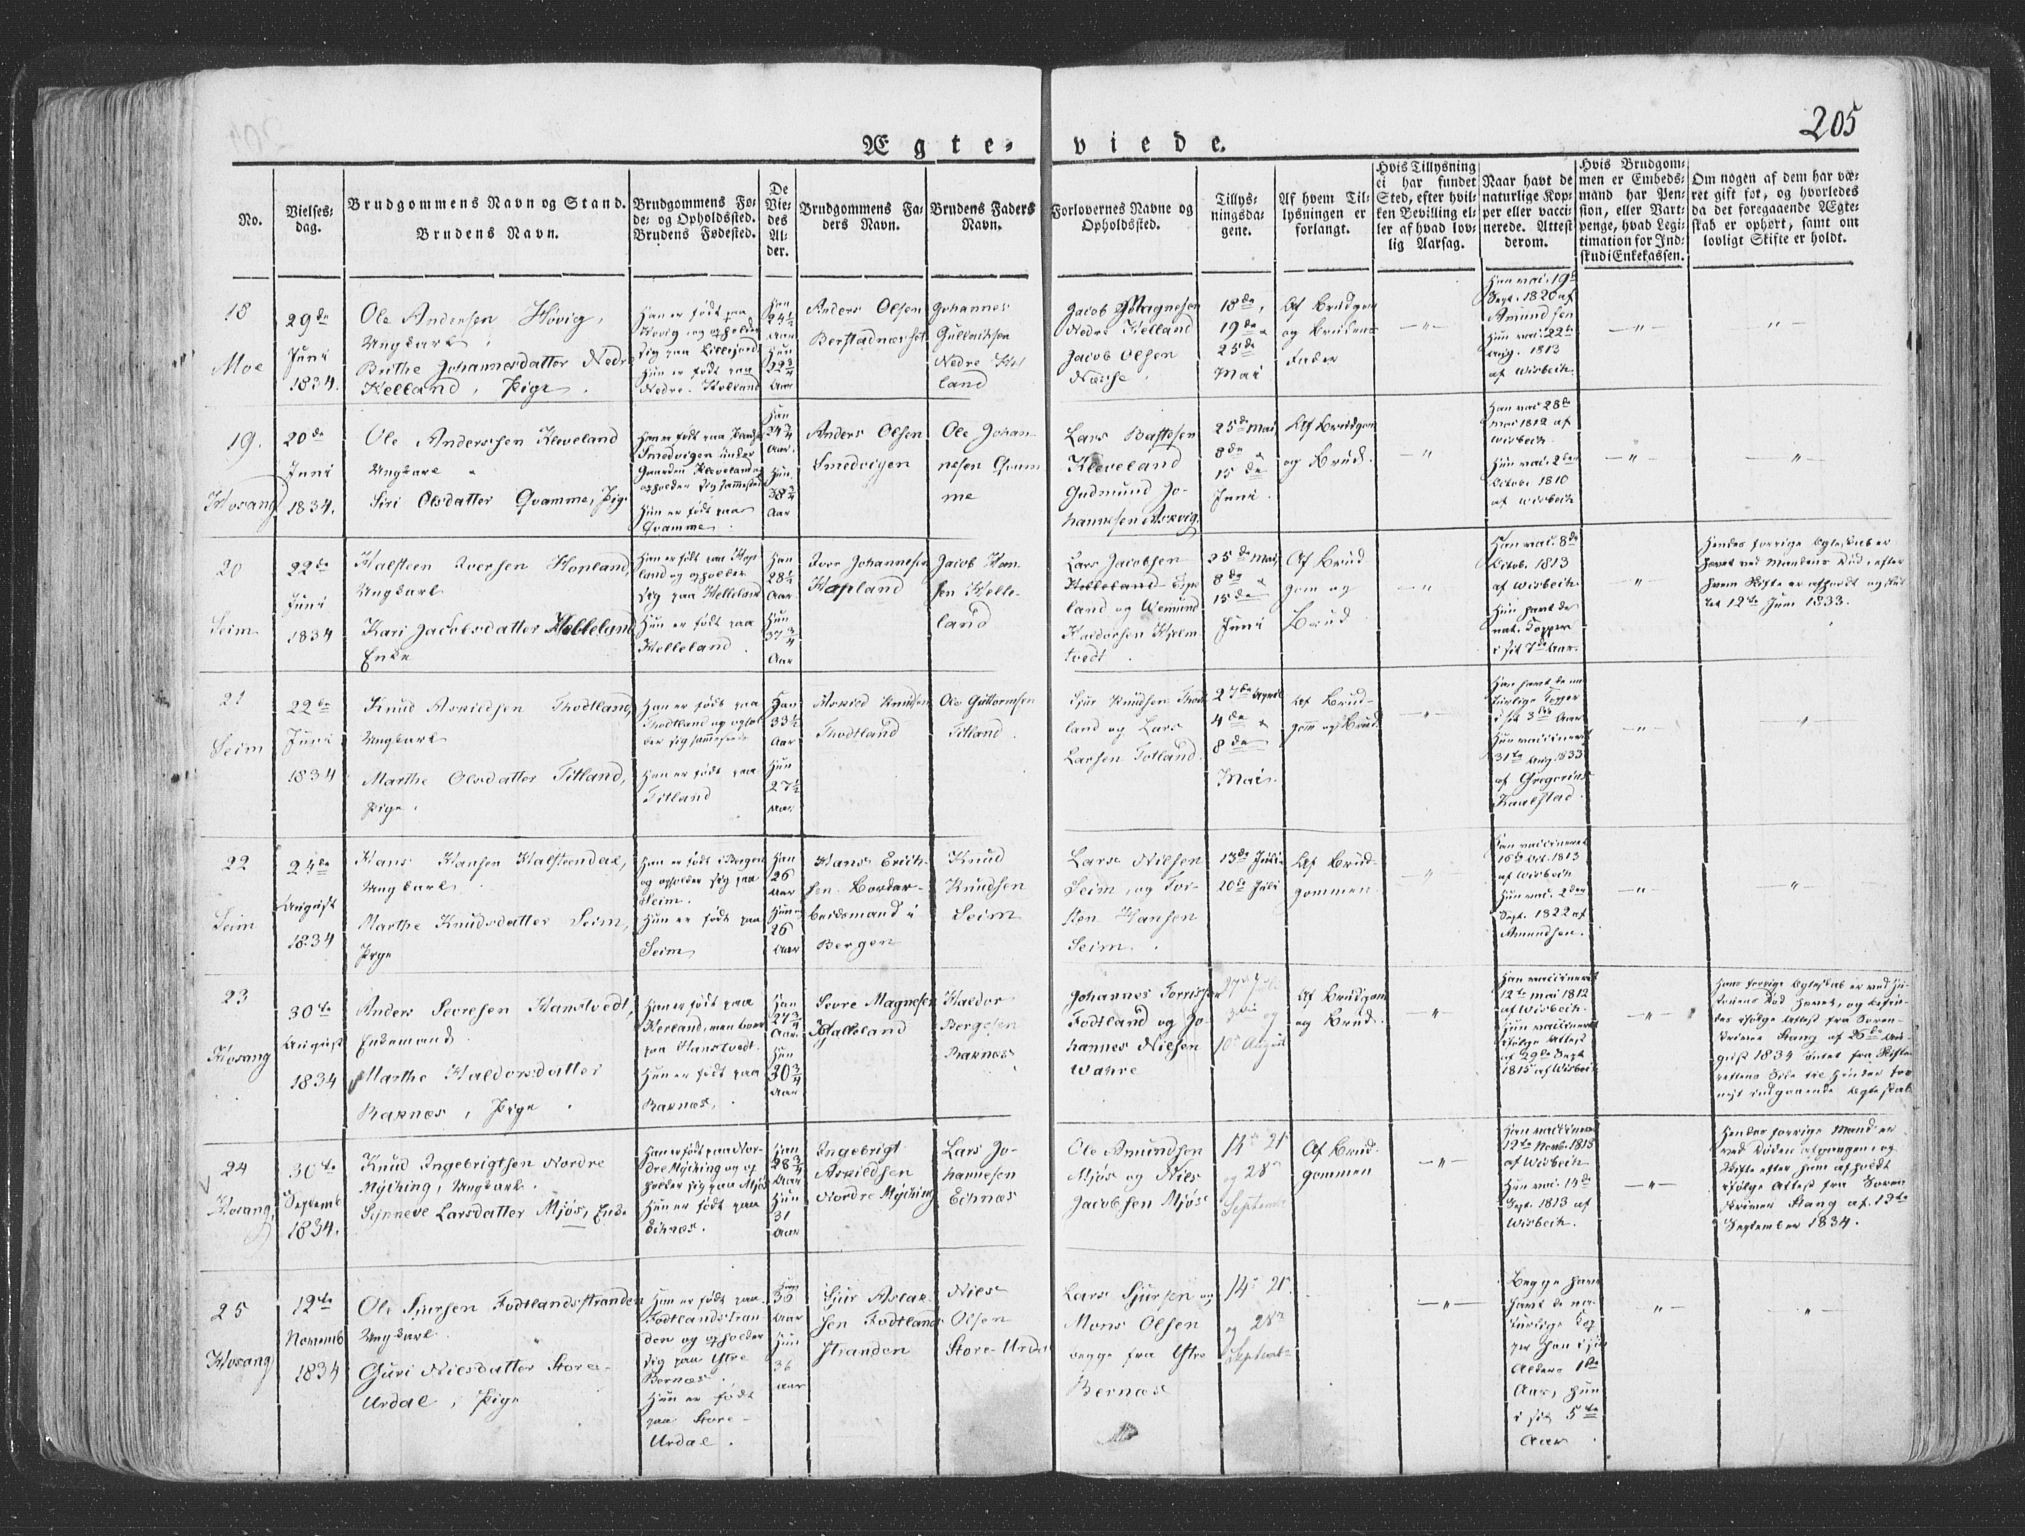 205
Ægteviede.
No.
Vielsesdag.
Brudgommens Navn og Stand.
Brudens Navn.
Brudgommens Føde- og Opholdsted.
Brudens Fødested.
De Viedes Alder.
Brudgommens Faders Navn.
Brudens Faders Navn.
Forlovernes Navne og Opholdsted.
Tillysningsdagene.
Af hvem Tillysningen er forlangt.
Hvis Tillysning ei har fundet Sted, efter hvilken Bevilling eller af hvad lovlig Aarsag.
Naar havt de naturlige Kopper eller vaccinerede. Attest derom.
Hvis Brudgommen er Embedsmand har Pension, eller Vartpenge, hvad Legitimation for Indskud i Enkekassen.
Om nogen af dem har været gift før, og hvorledes da det foregaaende Ægteskab er ophørt, samt om lovligt Skifte er holdt.
18
Moe
29de
Juni
1834.
Ole Andersen Høvig,
Ungkarl,
Brithe Johannesdatter Nedre
Helland, Pige.
Han er født paa
Høvig og opholder
sig paa
Hun er født paa
Nedre Helland
Han
24½
Aar
Hun
Aar
Anders Olsen
Johannes
Gulleiksen
Nedre Helland
Jacob Magnesen
Nedre Helland
Jacob Olsen
18de,
19de
25de
Mai
Af Brudgom
og Brudens
Fader
Han vac. 19
Sept. 1820 af
Amundsen
Hun vac. 22de
Aug. 1813
af Wisbech.
19.
Hosang
20de
Juni
1834.
Ole Andersen Kleveland
Ungkarl
Siri Olsdatter Qvamme, Pige
Smedvigen under
Gaarden Kleveland
opholder sig sammested
Hun er født paa
Qvamme.
Han
Aar.
Hun
38¾
Aar
Anders Olsen
Smedvigen
Ole Johannesen
Qvamme
Lars
Kleveland
Gudmund Johannesen
25de Mai,
8de
15de
Juni.
Af Brudgom
og Brud.
Han vac. 28de
Mai 1812 af
Wisbech.
Hun vac. 2den
Octob. 1810
af Wisbech
20
Seim
22de
Juni
1834
Halsteen Iversen Hopland,
Ungkarl
Kari Jacobsdatter Helleland
Enke
Han er født paa Hopland
og opholder
sig paa Helleland
Hun er født paa
Helleland.
Han
28½
Aar.
Hun
37¾
Aar
Iver Johannesen
Hopland
Jacob
Helleland
Lars Jacobsen
Helleland
25de Mai,
8de
15de
Juni
Af Brudgom og
Brud
Han vac. 8de
Octob. 1813
af Wisbech.
Hun havt de
nat. Kopper
i sit 7de Aar.
Hendes forrige Ægteskab er
hævet ved Mandens Død, efter
hvem Skifte er afholdt og sluttet
12te Juni 1833.
21
Seim
22de
Juni
1834
Knud Askildsen Thodtland,
Ungkarl
Marthe Olsdatter Titland,
Pige.
Han er født paa
Thodtland og opholder
sig sammesteds
Hun er født paa
Titland
Han
33½
Aar
Hun
27½
Aar
Askild Knudsen
Thodtland
Ole Guttormsen
Titland.
Sjur Knudsen Thodtland
og Lars
Larsen Totland.
27de April
4de
8de
Mai.
Af Brudgom
og Brud.
Han havt de naturlige
Kopper
i sit 3die Aar
Hun vaccineret
31te Aug. 1833
af Gregorius
Kaalstad.
22
Seim
24de
August
1834
Hans Hansen Halsteendal,
Ungkarl.
Marthe Knudsdatter Seim,
Pige
Han er født i Bergen
og opholder sig paa
Seim.
Hun er født paa
Seim
Han
26
Aar
Hun
26
Aar
Hans Erichsen
Bordarbeidsmand i
Bergen
Knud
Knudsen
Seim
Lars Nilsen
Seim, og Torsten
Hansen
Seim.
13de Juli
20de Juli
Af Brudgommen
Han vaccineret
16de Oct. 1813
af Wisbech
Hun vac. 2den
Sept. 1822 af
Amundsen.
23
Hosang
30te
August
1834
Anders Sevresen Hanstvedt,
Enkemand.
Marthe Haldorsdatter
Raknæs, Pige.
Han er født paa
paa Hanstvedt.
Hun er født paa
Raknæs.
Han
27¾
Aar.
Hun
30¾
Aar
Sevre Magnesen
Haldor
Bergesen
Raknæs
Johannes
Fodtland og Johannes
Nielsen
10 August
Af Brudgom
og Brud.
Han vaccineret
12te Mai 1812
af Wisbech
Hun vaccineret
ifølge Attest
af 29de Sept
1815 af Wisbech
Hans forrige Ægteskab er ved
Død hævet, og
ifølge Attest fra Sorenskriver
Stang af 26de August
1834 Intet fra Skifterettens
Side til Hinder for
nyt indgaaende Ægteskab
24
Hosang
30te
Septemb
1834.
Knud Ingebrigtsen Nordre
Myching, Ungkarl.
Synneve Larsdatter Mjøs, Enke
Han er født paa Nordre
Myching og opholder
sig paa Mjøs
Hun er født paa
Eknæs.
Han
28¾
Aar
Hun
31
Aar
Ingebrigt
Askildsen
Nordre Myching
Lars Johannesen
Eknæs
Ole Amundsen
Mjøs og Niels
Jacobsen Mjøs
14 21
og 28
September
Af Brudgommen
Han vaccineret
12te Novb. 1815
af Wisbech
Hun vac. 14de
Sept. 1813 af
Wisbech.
Hendes forrige Mand er
ved Døden afgangen, og
Skifte efter ham afholdt
ifølge Attest fra Sorenskriver
Stang af 13te
September 1834.
25
Hosang
12te
Novemb
1834
Ole Sjursen Fodtlandsstranden
Ungkarl.
Guri Nielsdatter Store-
Urdal, Pige
Han er født paa
Fodtlandsstranden
og opholder
sig paa Ytre
Bernæs.
Hun er født
paa Store-
Urdal.
Han
36
Aar
Hun
36
Aar
Sjur Aslaksen
Fodtlandsstranden
Niels
Olsen
Store-Urdal
Lars Sjursen og
Mons Olsen
begge fra Ytre
Bernæs
14 21
og 28
Septemb
Begge have
havt de naturlige
Kopper
Han i sin
Alders 1ste
Aar, Hun
i sit 5te
Aar.